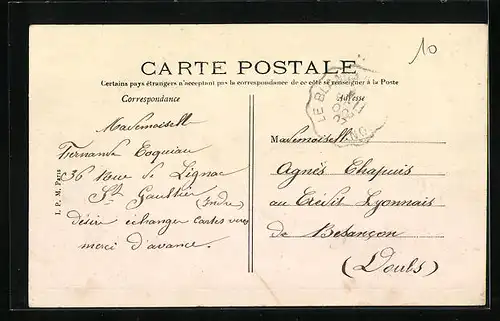 10
CARTE POSTALE
Certains pays étrangers n'acceptant pas la correspondance de ce côté se renseigner à la Poste
Correspondance
Adresse
LE BL
Mademoiselle
Fernande
36 Rue de Lignac
St Gaultier
(Indre)
désire échanger cartes vues
merci d'avance.
I. P. M. Paris
Mademoiselle
Agnès Chapuis
au Crédit Lyonnais
de Besançon
(Doubs)